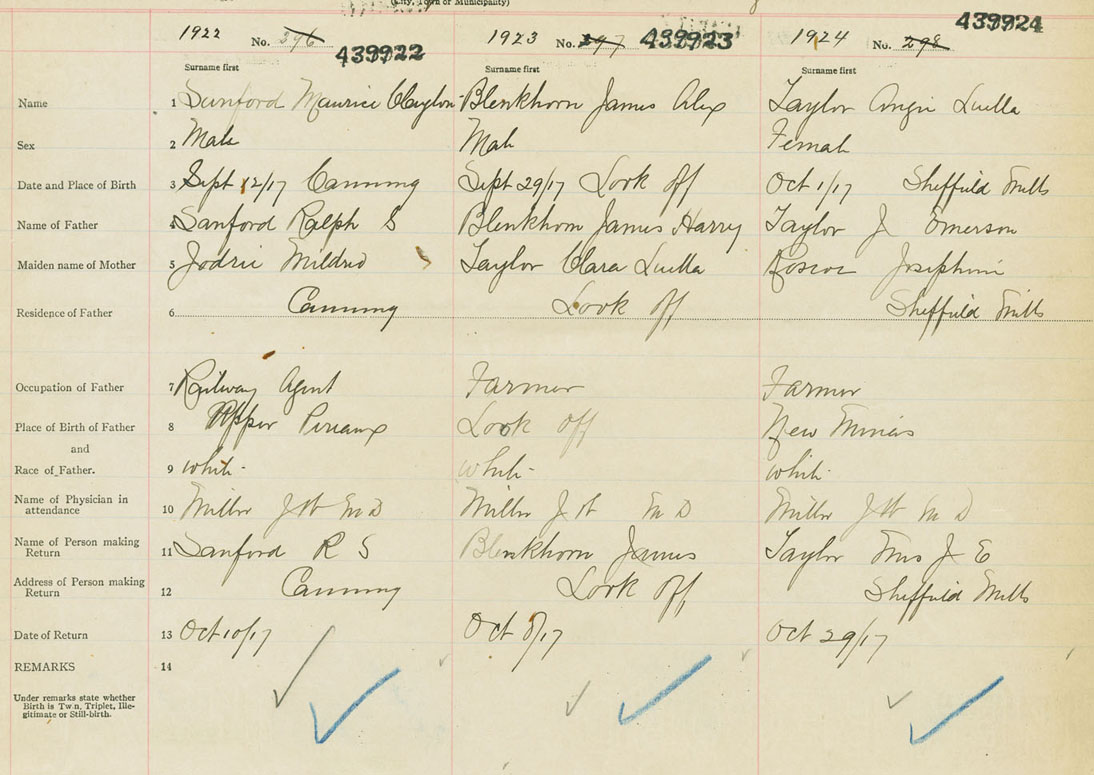 (City, Town or Municipality)
1922 No. 296 439922 1923 No. 297 439923 1924 No. 298 439924
Surname first Surname first Surname first
Name 1 Sanford Maurice Clayton Blenkhorn James Alex Taylor Angie Luella
Sex 2 Male Male Female
Date and Place of Birth 3 Sept 12/17 Canning Sept 29/17 Look Off Oct 1/17 Sheffield Mills
Name of Father 4 Sanford Ralph S Blenkhorn James Harry Taylor J Emerson
Maiden name of Mother 5 Mildred Taylor Clara Luella Roscoe Josephine
Residence of Father 6 Canning Look Off Sheffield Mills
Occupation of Father 7 Railway Agent Farmer Farmer
Place of Birth of Father 8 Upper Pereaux Look Off New Minas
and
Race of Father. 9 White White White
Name of Physician in
attendance 10 Miller J W M D Miller J W M D Miller J W M D
Name of Person making
Return 11 Sanford R S Blenkhorn James Taylor Mrs J E
Address of Person making
Return 12 Canning Look Off Sheffield Mills
Date of Return 13 Oct 10/17 Oct 8/17 Oct 29/17
REMARKS 14
Under remarks state whether
Birth is Twin, Triplet, Ille-
gitimate or Still-birth.